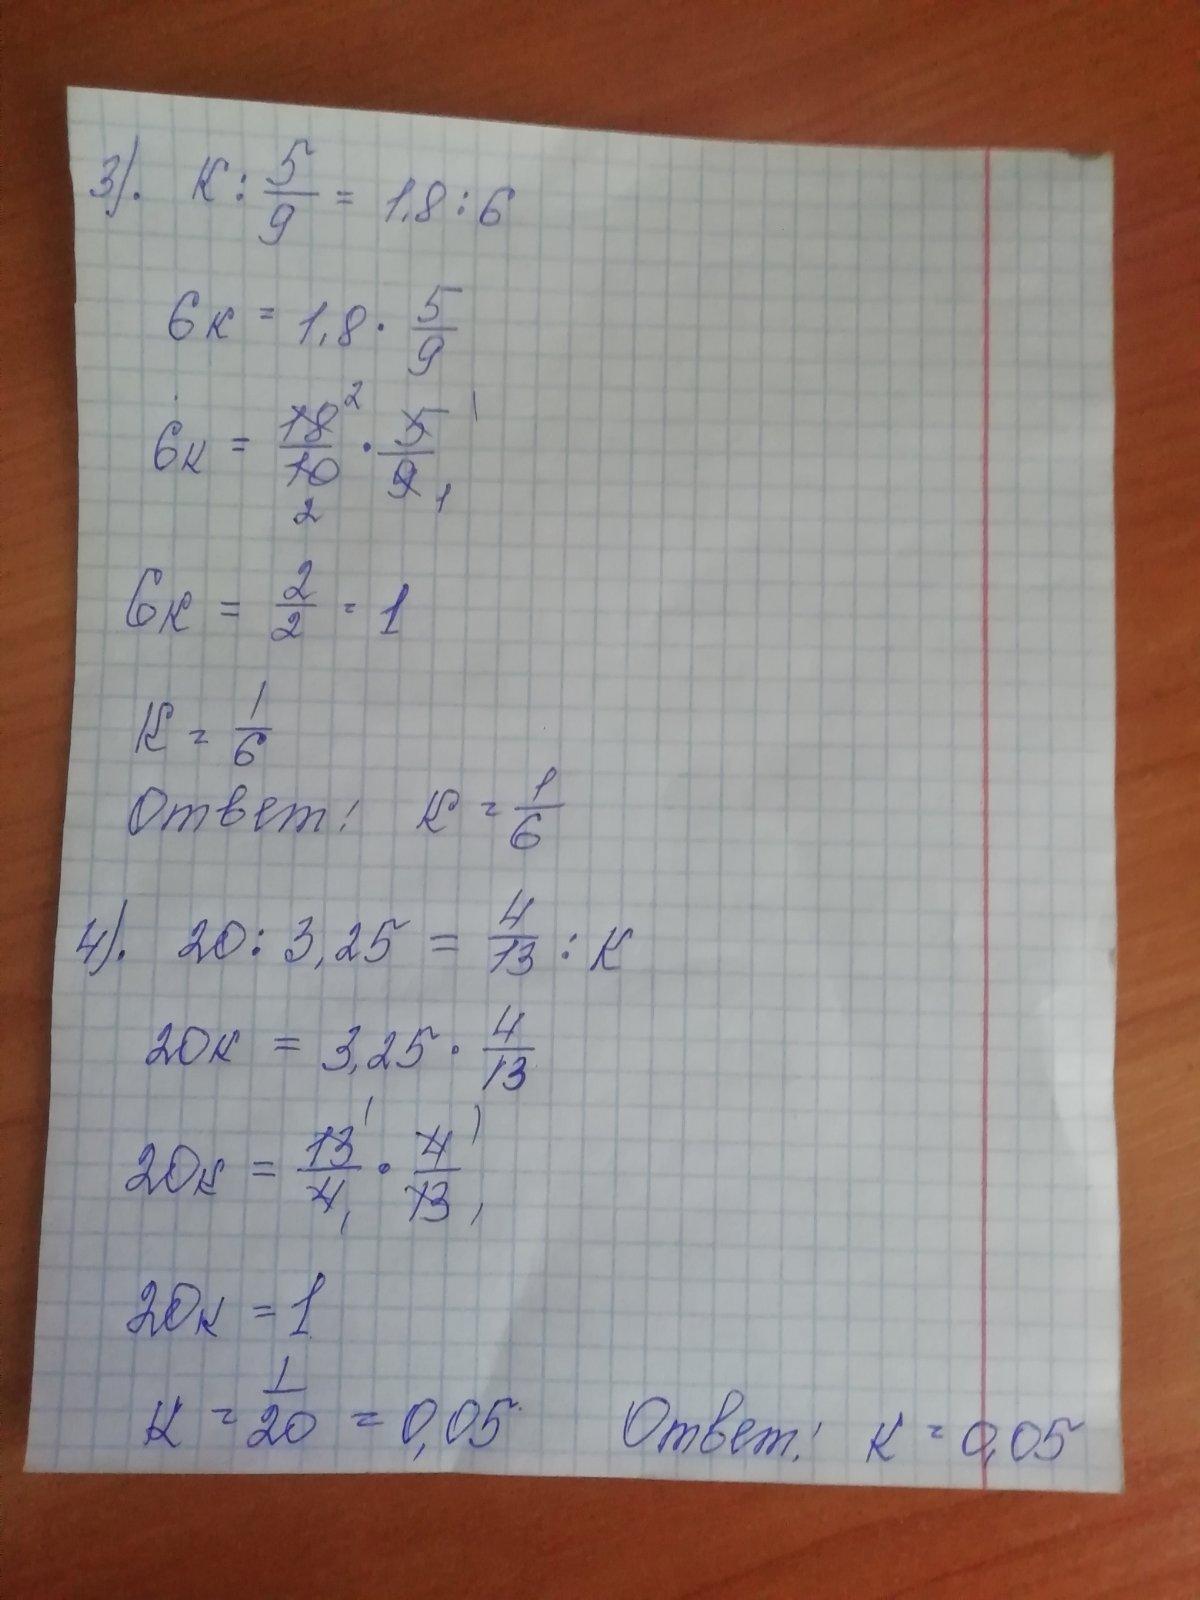 3). К : 5/9 = 1,8 : 6
6к = 1,8 · 5/9
6к = 18²/10₂ · 5¹/9₁
6к = 2/2 = 1
К = 1/6
Ответ: К = 1/6
4). 20 : 3,25 = 4/13 : К
20к = 3,25 · 4/13
20к = 13¹/4₁ · 4¹/13₁
20к = 1
К = 1/20 = 0,05 Ответ: К = 0,05